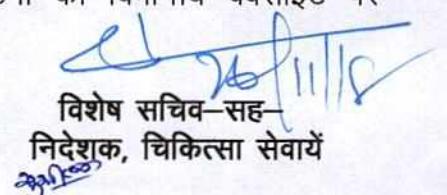 का विभागीय वेबसाईट पर
26/11/18
विशेष सचिव–सह–
निदेशक, चिकित्सा सेवायें